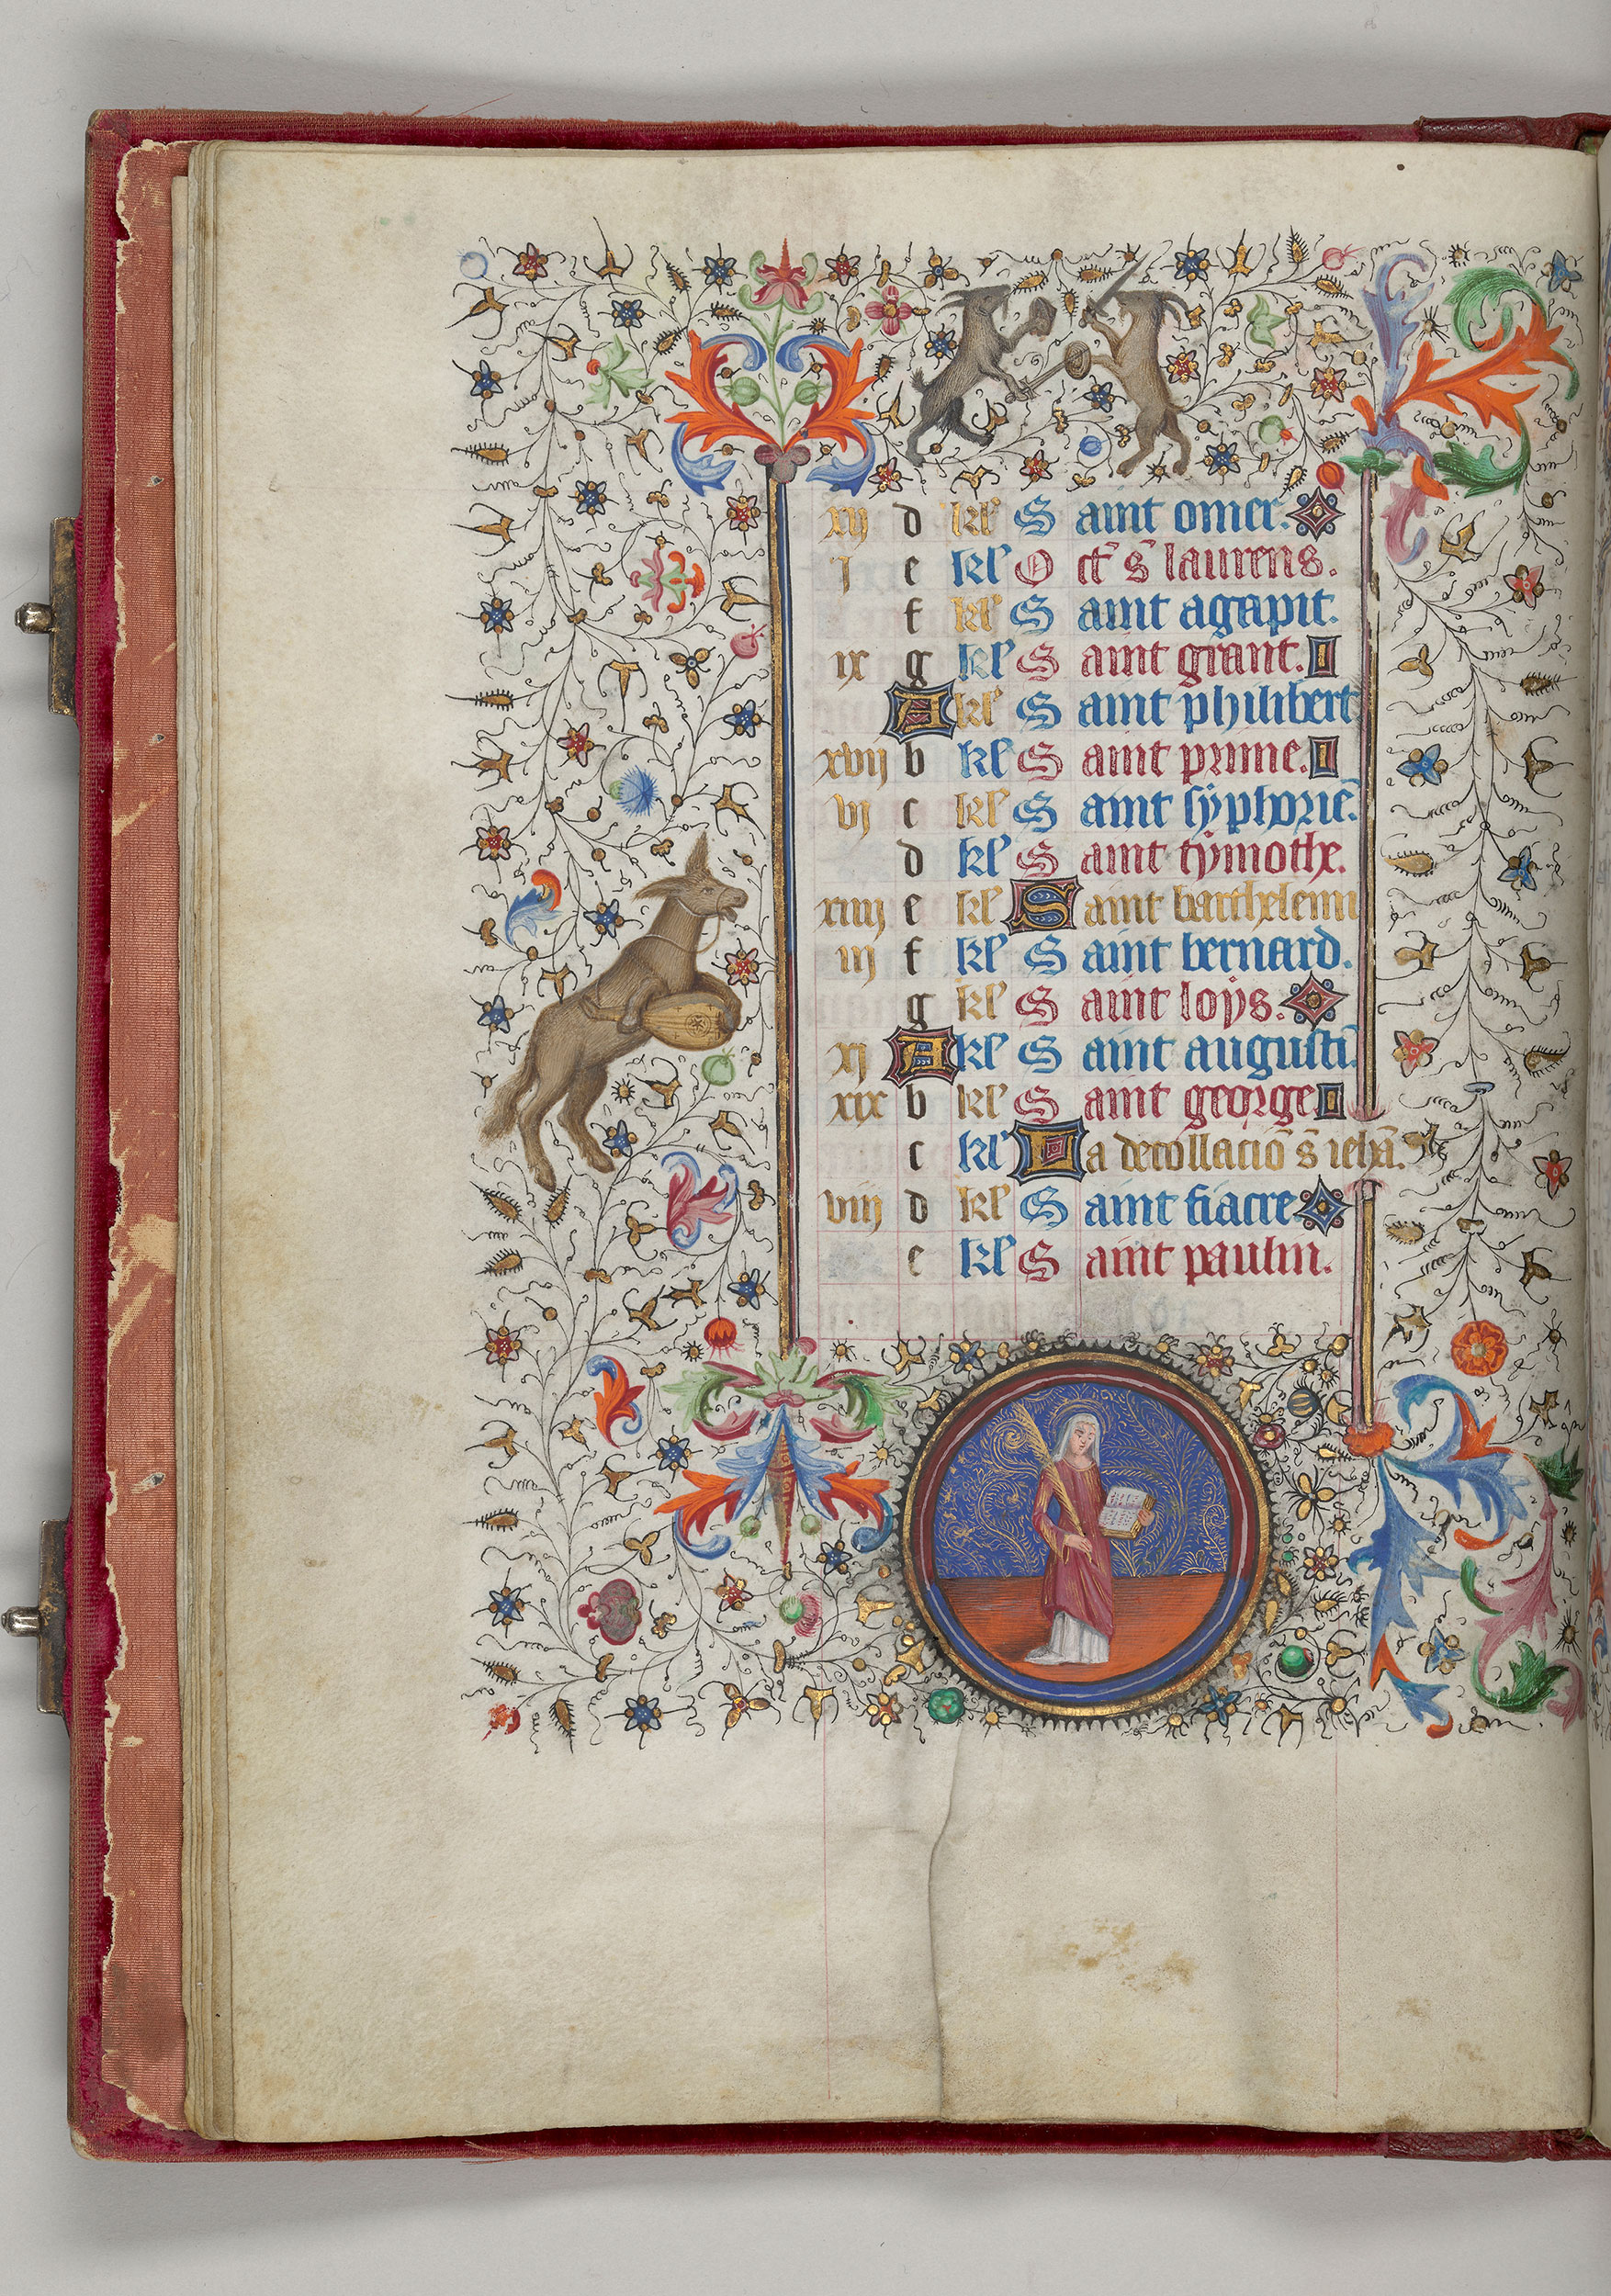 xij d kl' S aint omer.
j e kl' O ct' s' laurens.
f kl' S aint agapit.
ix g kl' S aint grant.
A kl' S aint philibert
xvij b kl' S aint prime.
vj c kl' S aint sÿphoriē.
d kl' S aint tÿmothe.
xiiij e kl' Saint barthelemi
iij f kl' S aint bernard.
g kl' S aint loÿs.
xj A kl' S aint augusti̅.
xix b kl' S aint george
c kl' La decollacio̅ s̅ ieha̅.
viij d kl' S aint fiacre
e kl' S aint paulin.